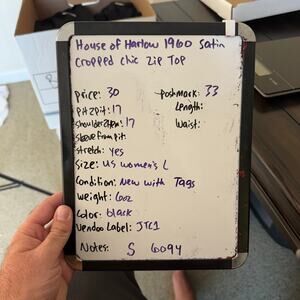 House of Harlow 1960 Satin
cropped chic zip Top
price: 30
poshmark: 33
pit2pit: 17
Length:
shoulder2hem: 17
Waist:
sleeve from pit:
stretch: yes
Size: US women's L
Condition: New with Tags
weight: 6oz
Color: black
Vendoo Label: JTC1
Notes: S 6094